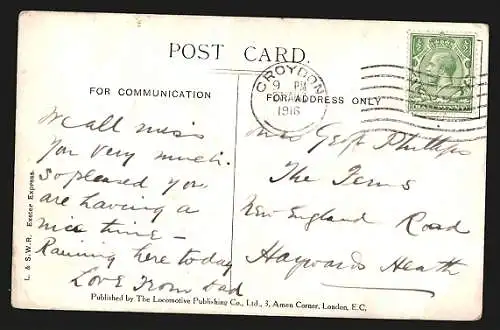 POST CARD.
FOR COMMUNICATION
FOR ADDRESS ONLY
CROYDON
9 PM
1916
We all miss
you very much.
So pleased you
are having a
nice time —
Raining here today
Love from Dad
Miss Geoff Phillips
The Ferns
New England Road
Haywards Heath
L. & S.W.R. Exeter Express.
Published by The Locomotive Publishing Co., Ltd., 3, Amen Corner, London, E.C.